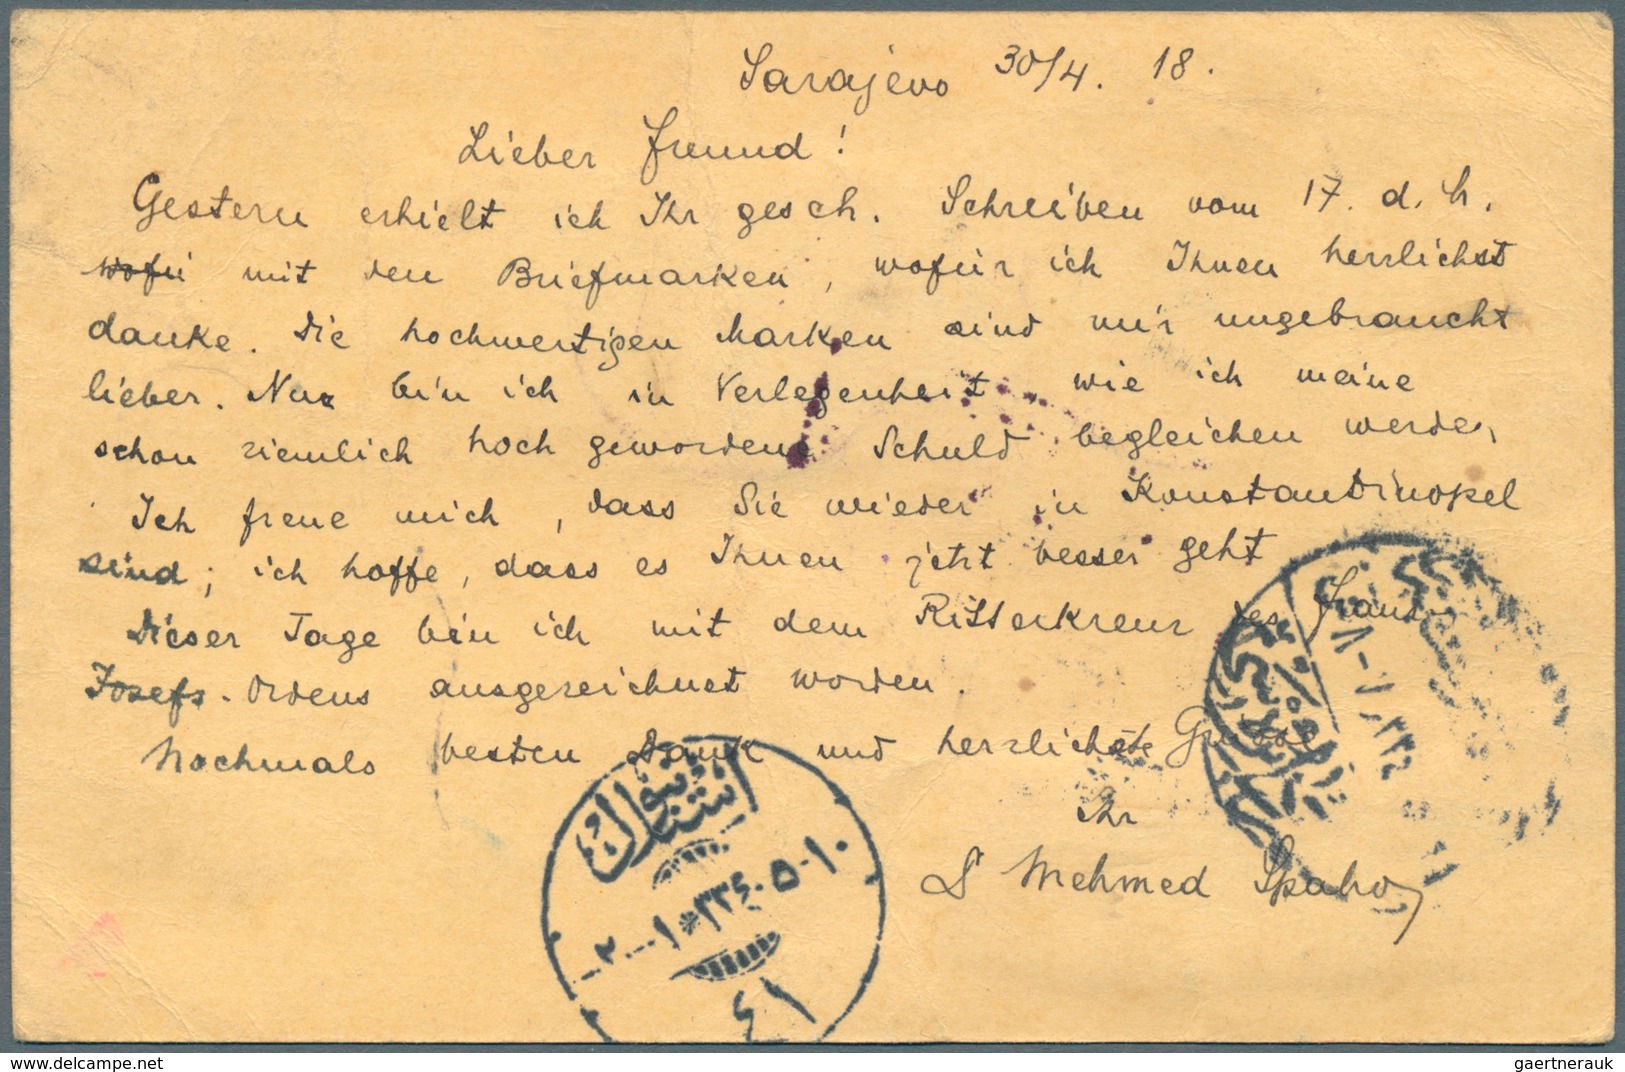 Sarajevo 30/4. 18.
Lieber Freund!
Gestern erhielt ich Ihr gesch. Schreiben vom 17. d. M.
wofü mit den Briefmarken, wofür ich Ihnen herzlichst
danke. Die hochwertigen Marken sind mir ungebraucht
lieber. Nur bin ich in Verlegenheit, wie ich meine
schon ziemlich hoch gewordene Schuld begleichen werde,
Ich freue mich, dass Sie wieder in Konstantinopel
sind; ich hoffe, dass es Ihnen jetzt besser geht
Dieser Tage bin ich mit dem Ritterkreuz des Franz-
Josefs-Ordens ausgezeichnet worden.
Nochmals besten Dank und herzlichste Grüsse
Ihr
Mehmed Spaho
استانبول
١٠-٥-٣٣٤*١---٢
٤١
delcampe.net
gaertnerauk